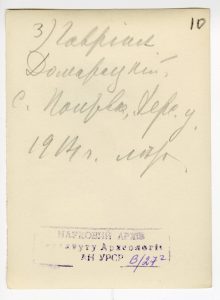 10
3) Гавріил
Домарацкій.
с. Херс. у.
1914 г.
НАУКОВИЙ АРХІВ
Інституту Археології
АН УРСР В/27 2